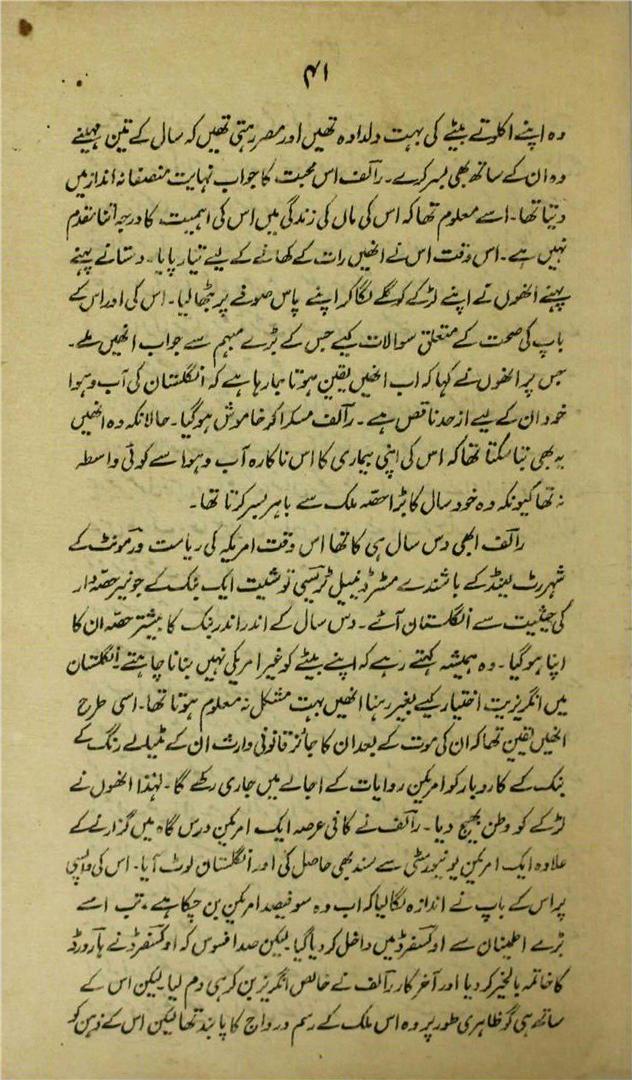 ۴۱
وہ اپنے اکلوتے بیٹے کی بہت دلدادہ تھیں اور مصر رہتی تھیں کہ سال کے تین مہینے
وہ ان کے ساتھ بھی بسر کرے۔ رآلف اس محبت کا جواب نہایت منصفانہ انداز میں
دیتا تھا۔ اسے معلوم تھا کہ اس کی ماں کی زندگی میں اس کی اہمیت کا درجہ اتنا مقدم
نہیں ہے۔ اس وقت اس نے انھیں رات کے کھانے کے لیے تیار پایا۔ دستانے پہنے
پہنے انھوں نے اپنے لڑکے کو گلے لگا کر اپنے پاس صوفے پر بٹھا لیا۔ اس کی اور اس کے
باپ کی صحت کے متعلق سوالات کیے جس کے بڑے مبہم سے جواب انھیں ملے۔
جس پر انھوں نے کہا کہ اب انھیں یقین ہوتا جا رہا ہے کہ انگلستان کی آب و ہوا
خود ان کے لیے از حد ناقص ہے۔ رآلف مسکرا کر خاموش ہو گیا۔ حالانکہ وہ انھیں
یہ بھی بتا سکتا تھا کہ اس کی اپنی بیماری کا اس ناکارہ آب و ہوا سے کوئی واسطہ
نہ تھا کیونکہ وہ خود سال کا بڑا حصہ ملک سے باہر بسر کرتا تھا۔
رالف ابھی دس سال ہی کا تھا اس وقت امریکہ کی ریاست ورمونٹ کے
شہر رٹ لینڈ کے باشندے مسٹر ڈینیل ٹریسی توشیٹ ایک بنک کے جونیر حصہ دار
کی حیثیت سے انگلستان آئے۔ دس سال کے اندر اندر بنک کا بیشتر حصہ ان کا
اپنا ہو گیا۔ وہ ہمیشہ کہتے رہے کہ اپنے بیٹے کو غیر امریکی نہیں بنانا چاہتے۔ انگلستان
میں انگریزیت اختیار کیے بغیر رہنا انھیں بہت مشکل نہ معلوم ہوتا تھا۔ اسی طرح
انھیں یقین تھا کہ ان کی موت کے بعد ان کا جائز قانونی وارث ان کے مٹیالے رنگ کے
بنک کے کاروبار کو امریکن روایات کے اجالے میں جاری رکھے گا۔ لہٰذا انھوں نے
لڑکے کو وطن بھیج دیا۔ رآلف نے کافی عرصہ ایک امریکن درس گاہ میں گزارنے کے
علاوہ ایک امریکن یونیورسٹی سے سند بھی حاصل کی اور انگلستان لوٹ آیا۔ اس کی واپسی
پر اس کے باپ نے اندازہ لگا لیا کہ اب وہ سو فیصد امریکن بن چکا ہے۔ تب اسے
بڑے اطمینان سے اوکسفرڈ میں داخل کر دیا گیا لیکن صد افسوس کہ اوکسفرڈ نے ہارورڈ
کا خاتمہ بالخیر کر دیا اور آخر کار رآلف نے خالص انگریز بن کر ہی دم لیا۔ لیکن اس کے
ساتھ ہی گو ظاہری طور پر وہ اس ملک کے رسم و رواج کا پابند تھا لیکن اس کے ذہن کو